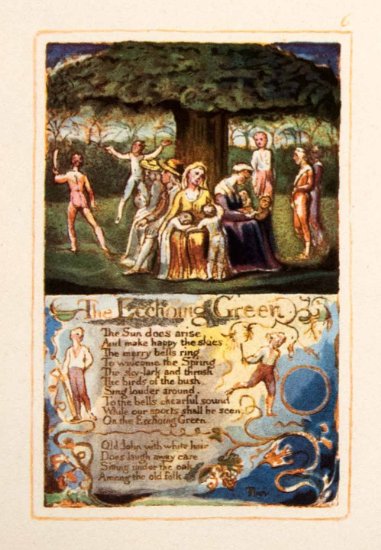 6
The Ecchoing Green
The Sun does arise
And make happy the skies
The merry bells ring
To welcome the Spring
The sky-lark and thrush
The birds of the bush
Sing louder around
To the bells chearful sound
While our sports shall be seen
On the Ecchoing Green
Old John with white hair
Does laugh away care
Sitting under the oak
Among the old folk